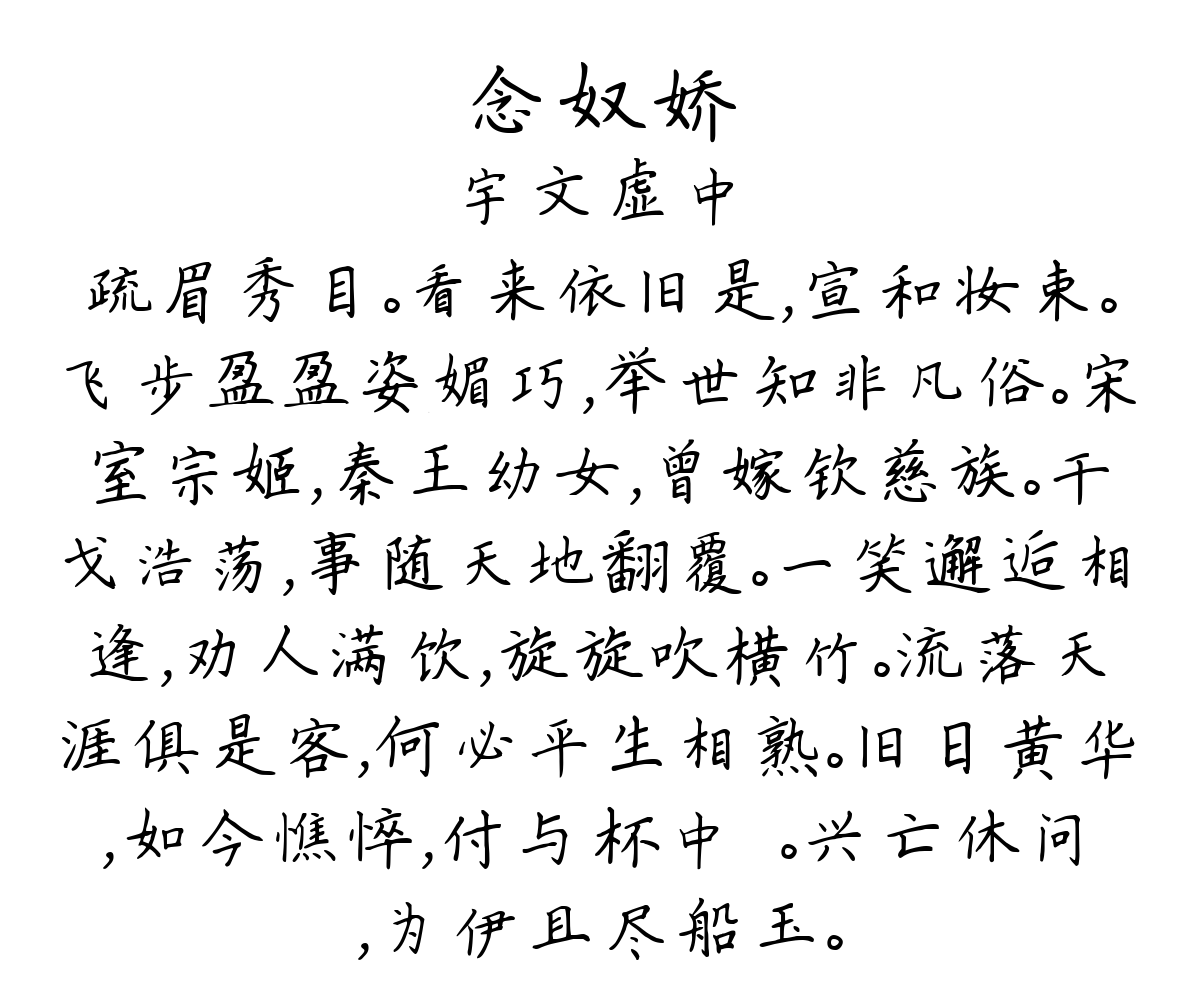 念奴娇
宇文虚中
疏眉秀目。看来依旧是,宣和妆束。
飞步盈盈姿媚巧,举世知非凡俗。宋
室宗姬,秦王幼女,曾嫁钦慈族。干
戈浩荡,事随天地翻覆。一笑邂逅相
逢,劝人满饮,旋旋吹横竹。流落天
涯俱是客,何必平生相熟。旧日黄华
,如今憔悴,付与杯中 。兴亡休问
,为伊且尽船玉。